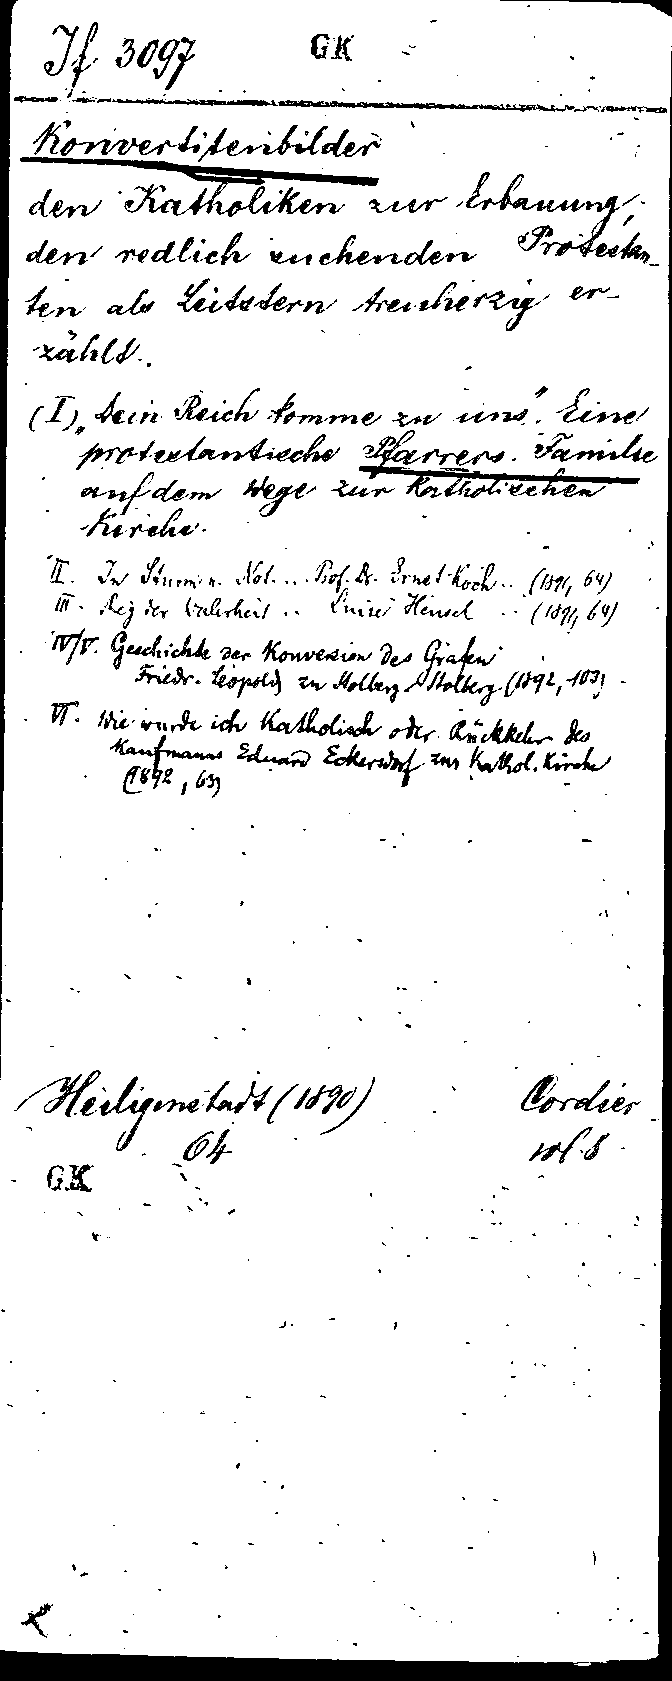 If 3097 GK
Konvertitenbilder
den Katholiken zur Erbauung,
den redlich suchenden Protestan-
ten als Leitstern treuherzig er-
zählt.
(I) „Dein Reich komme zu uns". Eine
protestantische Pfarrers-Familie
auf dem Wege zur katholischen
Kirche.
II. In Sturm u. Not... Prof. Dr. Ernst Koch .. (1891, 64)
III. Sieg der Wahrheit .. Luise Hensel .. (1891, 64)
IV/V. Geschichte der Konversion des Grafen
Friedr. Leopold zu Stolberg-Stolberg (1892, 103)
VI. Wie wurde ich katholisch oder Rückkehr des
Kaufmanns Eduard Eckersdorf zur kathol. Kirche
(1892, 63)
Heiligenstadt (1890) Cordier
64 8
GK